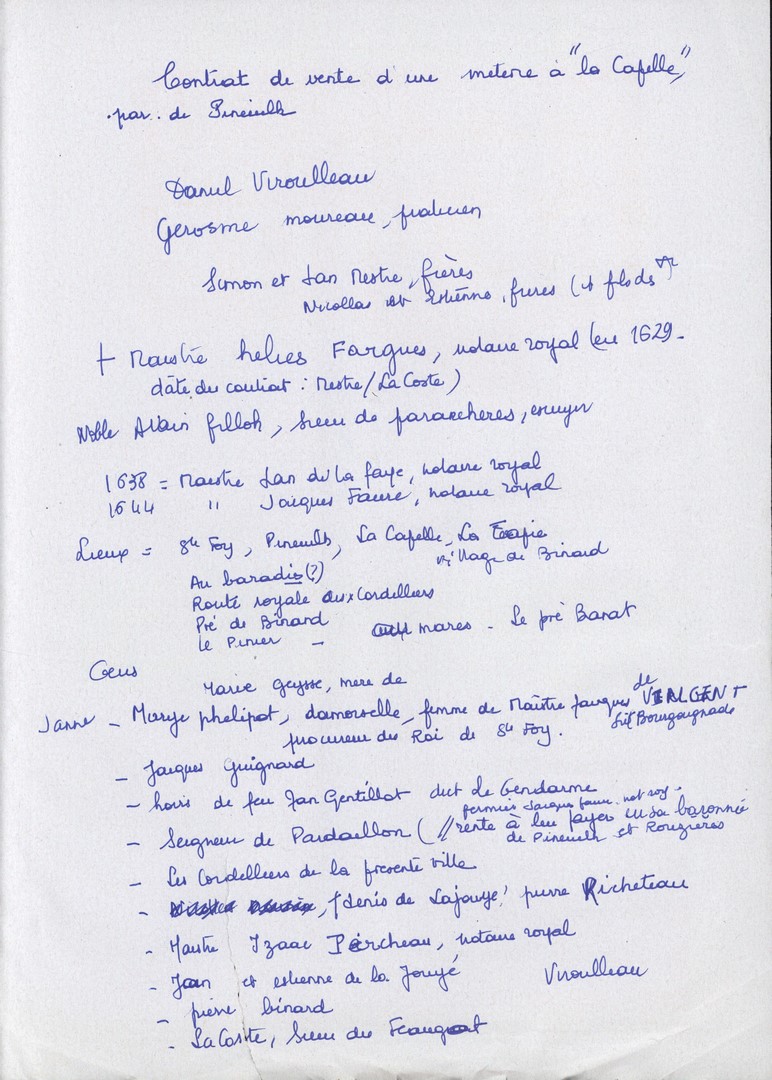 Contrat de vente d'une meterie à "la Capelle",
par. de Pineuilh
Daniel Viroulleau
Gerosme moureau, praticien
Simon et Jan Mestre, frères
Nicollas et Estienne, frères (et fils ds
+ Maistre helies Fargues, notaire royal (en 1629 -
dâte du contrat : Mestre/La Coste)
Noble Allain filloh, sieur de paraxcheres, escuyer
1638 = Maistre Jan de la faye, notaire royal
1644 " Jacques Faure, notaire royal
Lieux = Ste Foy, Pineuilh, La Capelle, La
village de Binard
Au baradis (?)
Route royale aux Cordelliers
Pré de Binard
Le Pinier - mares - Le pré Barrat
Gens
Marie geysse, mere de
Janne - Marye phelipot, damoiselle, femme de Maistre Jacques de VIALGENT
procureur du Roi de Ste Foy. Sr Bourgougnade
- Jacques Guignard
- hoirs de feu Jan Gentillot dict le Gendarme
permis Jacques faure not roy.
- Seigneur de Pardaillon (// rente à leu payer en sa baronnie
de Pineuilh et Rouzieres
- Les Cordelliers de la presente ville
- denis de Lajouye pierre Richeteau
- Maistre Izaac Percheau, notaire royal
- Jean et estienne de la Jouyé Viroulleau
- pierre binard
- La Coste, Sieur du